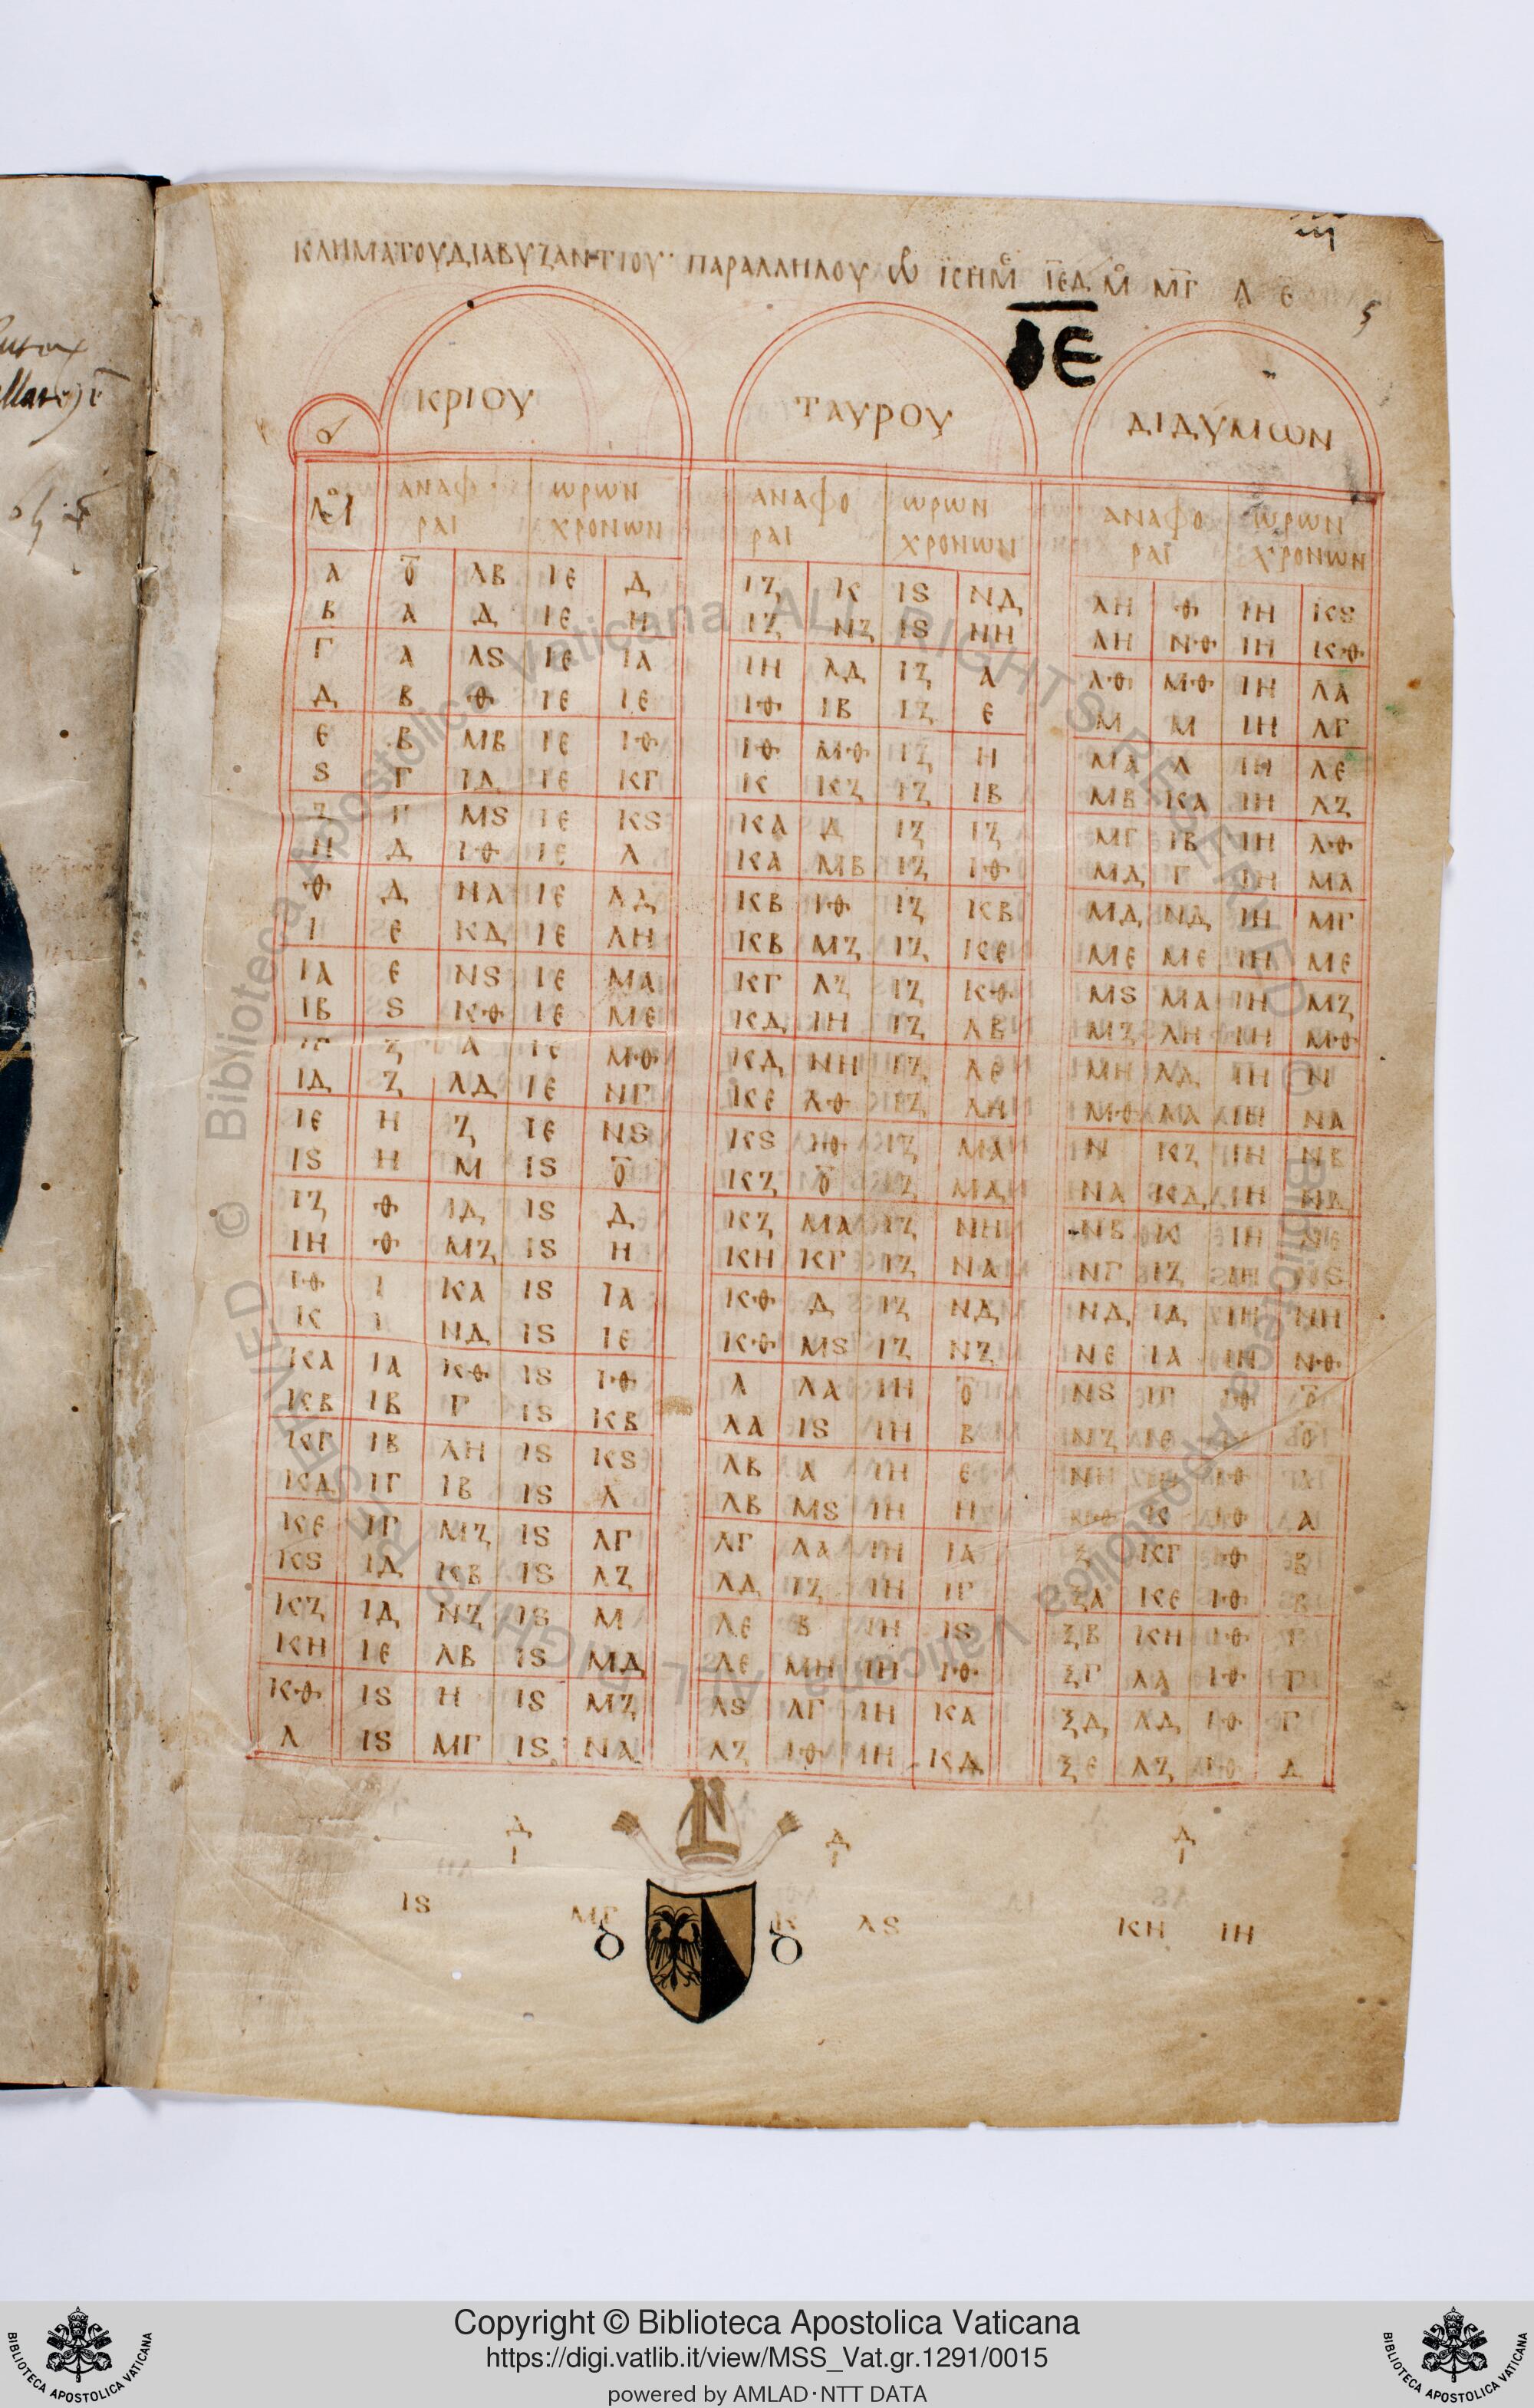 ΚΛΗΜΑ ΤΟΥ ΔΙΑ ΒΥΖΑΝΤΙΟΥ ΠΑΡΑΛΛΗΛΟΥ ΜΓ Λ Ε
ΙΕ
ΚΡΙΟΥ ΤΑΥΡΟΥ ΔΙΔΥΜΩΝ
ΑΝΑΦΟ ΩΡΩΝ ΑΝΑΦΟ ΩΡΩΝ ΑΝΑΦΟ ΩΡΩΝ
ΡΑΙ ΧΡΟΝΩΝ ΡΑΙ ΧΡΟΝΩΝ ΡΑΙ ΧΡΟΝΩΝ
Α ο ΛΒ ΙΕ Δ ΙΖ Κ ΙϚ ΝΔ ΛΗ Θ ΙΗ ΚϚ
Β Α Δ ΙΕ Η ΙΖ ΝΖ ΙϚ ΝΗ ΛΗ ΝΘ ΙΗ ΚΘ
Γ Α ΛϚ ΙΕ ΙΑ ΙΗ ΛΔ ΙΖ Α ΛΘ ΜΘ ΙΗ ΛΑ
Δ Β Θ ΙΕ ΙΕ ΙΘ ΙΒ ΙΖ Ε Μ Μ ΙΗ ΛΓ
Ε Β ΜΒ ΙΕ ΙΘ ΙΘ ΜΘ ΙΖ Η ΜΑ Λ ΙΗ ΛΕ
Ϛ Γ ΙΔ ΙΕ ΚΓ Κ ΚΖ ΙΖ ΙΒ ΜΒ ΚΑ ΙΗ ΛΖ
Ζ Γ ΜϚ ΙΕ ΚϚ ΚΑ Δ ΙΖ ΙΖ ΜΓ ΙΒ ΙΗ ΛΘ
Η Δ ΙΘ ΙΕ Λ ΚΑ ΜΒ ΙΖ ΙΘ ΜΔ Γ ΙΗ ΜΑ
Θ Δ ΝΑ ΙΕ ΛΔ ΚΒ ΙΘ ΙΖ ΚΒ ΜΔ ΝΔ ΙΗ ΜΓ
Ι Ε ΚΔ ΙΕ ΛΗ ΚΒ ΜΖ ΙΖ ΚΕ ΜΕ ΜΕ ΙΗ ΜΕ
ΙΑ Ε ΝϚ ΙΕ ΜΑ ΚΓ ΛΖ ΙΖ ΚΘ ΜϚ ΜΑ ΙΗ ΜΖ
ΙΒ Ϛ ΚΘ ΙΕ ΜΕ ΚΔ ΙΗ ΙΖ ΛΒ ΜΖ ΛΗ ΙΗ ΜΘ
ΙΓ Ζ Α ΙΕ ΜΘ ΚΔ ΝΗ ΙΖ ΛΕ ΜΗ ΛΔ ΙΗ Ν
ΙΔ Ζ ΛΔ ΙΕ ΝΓ ΚΕ ΛΘ ΙΖ ΛΗ ΜΘ ΙΗ ΝΑ
ΙΕ Η Ζ ΙΕ ΝϚ ΚϚ ΙΘ ΙΖ ΜΑ Ν ΚΖ ΙΗ ΝΒ
ΙϚ Η Μ ΙϚ ο ΚΖ ο ΙΖ ΜΔ ΝΑ ΚΔ ΙΗ
ΙΖ Θ ΙΔ ΙϚ Δ ΚΖ ΜΑ ΙΖ ΝΗ ΝΒ Κ ΙΗ
ΙΗ Θ ΜΖ ΙϚ Η ΚΗ ΚΓ ΙΖ ΝΑ ΝΓ ΙΖ ΙΗ ΝϚ
ΙΘ Ι ΚΑ ΙϚ ΙΑ ΚΘ Δ ΙΖ ΝΔ ΝΔ ΙΔ ΙΗ ΝΗ
Κ Ι ΝΔ ΙϚ ΙΕ ΚΘ ΜϚ ΙΖ ΝΖ ΝΕ ΙΑ ΙΗ ΝΘ
ΚΑ ΙΑ ΚΘ ΙϚ ΙΘ Λ ΛΑ ΙΗ ο ΝϚ ΙΓ ΙΘ ο
ΚΒ ΙΒ Γ ΙϚ ΚΒ ΛΑ ΙϚ ΙΗ Β ΝΖ ΙΕ ο
ΚΓ ΙΒ ΛΗ ΙϚ ΚϚ ΛΒ Α ΙΗ Ε ΝΗ ΙΘ
ΚΔ ΙΓ ΙΒ ΙϚ Λ ΛΒ ΜϚ ΙΗ Η ΝΘ Κ ΙΘ Α
ΚΕ ΙΓ ΜΖ ΙϚ ΛΓ ΛΓ ΛΑ ΙΗ ΙΑ Ξ ΚΓ ΙΘ Β
ΚϚ ΙΔ ΚΒ ΙϚ ΛΖ ΛΔ ΙΖ ΙΗ ΙΓ ΞΑ ΚΕ ΙΘ Β
ΚΖ ΙΔ ΝΖ ΙϚ Μ ΛΕ Β ΙΗ ΙϚ ΞΒ ΚΗ ΙΘ Γ
ΚΗ ΙΕ ΛΒ ΙϚ ΜΔ ΛΕ ΜΗ ΙΗ ΙΘ ΞΓ ΛΑ ΙΘ Γ
ΚΘ ΙϚ Η ΙϚ ΜΖ ΛϚ ΛΓ ΙΗ ΚΑ ΞΔ ΛΔ ΙΘ Γ
Λ ΙϚ ΜΓ ΙϚ ΝΑ ΛΖ ΙΘ ΙΗ ΚΔ ΞΕ ΛΖ ΙΘ Δ
Δ Δ Δ
Ι Ι Ι
ΙϚ ΜΓ Κ ΛϚ ΚΗ ΙΗ
BIBLIOTECA APOSTOLICA VATICANA
Copyright © Biblioteca Apostolica Vaticana
https://digi.vatlib.it/view/MSS_Vat.gr.1291/0015
powered by AMLAD·NTT DATA
BIBLIOTECA APOSTOLICA VATICANA
© Biblioteca Apostolica Vaticana ALL RIGHTS RESERVED
© Biblioteca Apostolica Vaticana ALL RIGHTS RESERVED